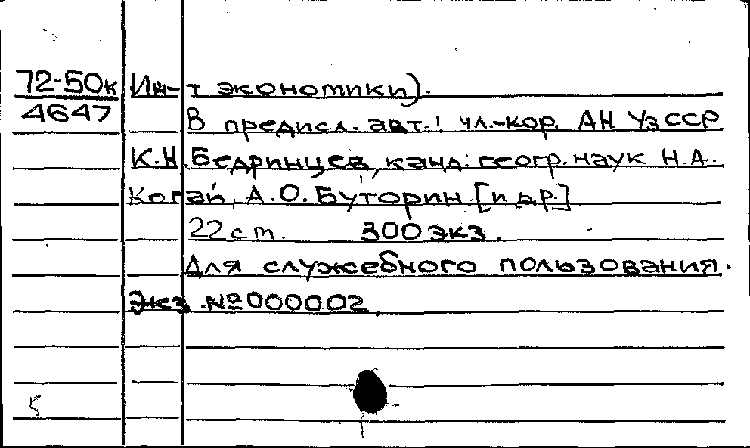 72-50к Ин-т экономики).
4647
В предисл. авт.: чл.-кор. АН УзССР
К.Н. Бедринцев, канд. геогр. наук Н.А.
Когай, А.О. Буторин [и др.]
22 см. 300 экз.
Для служебного пользования.
Экз. №000002